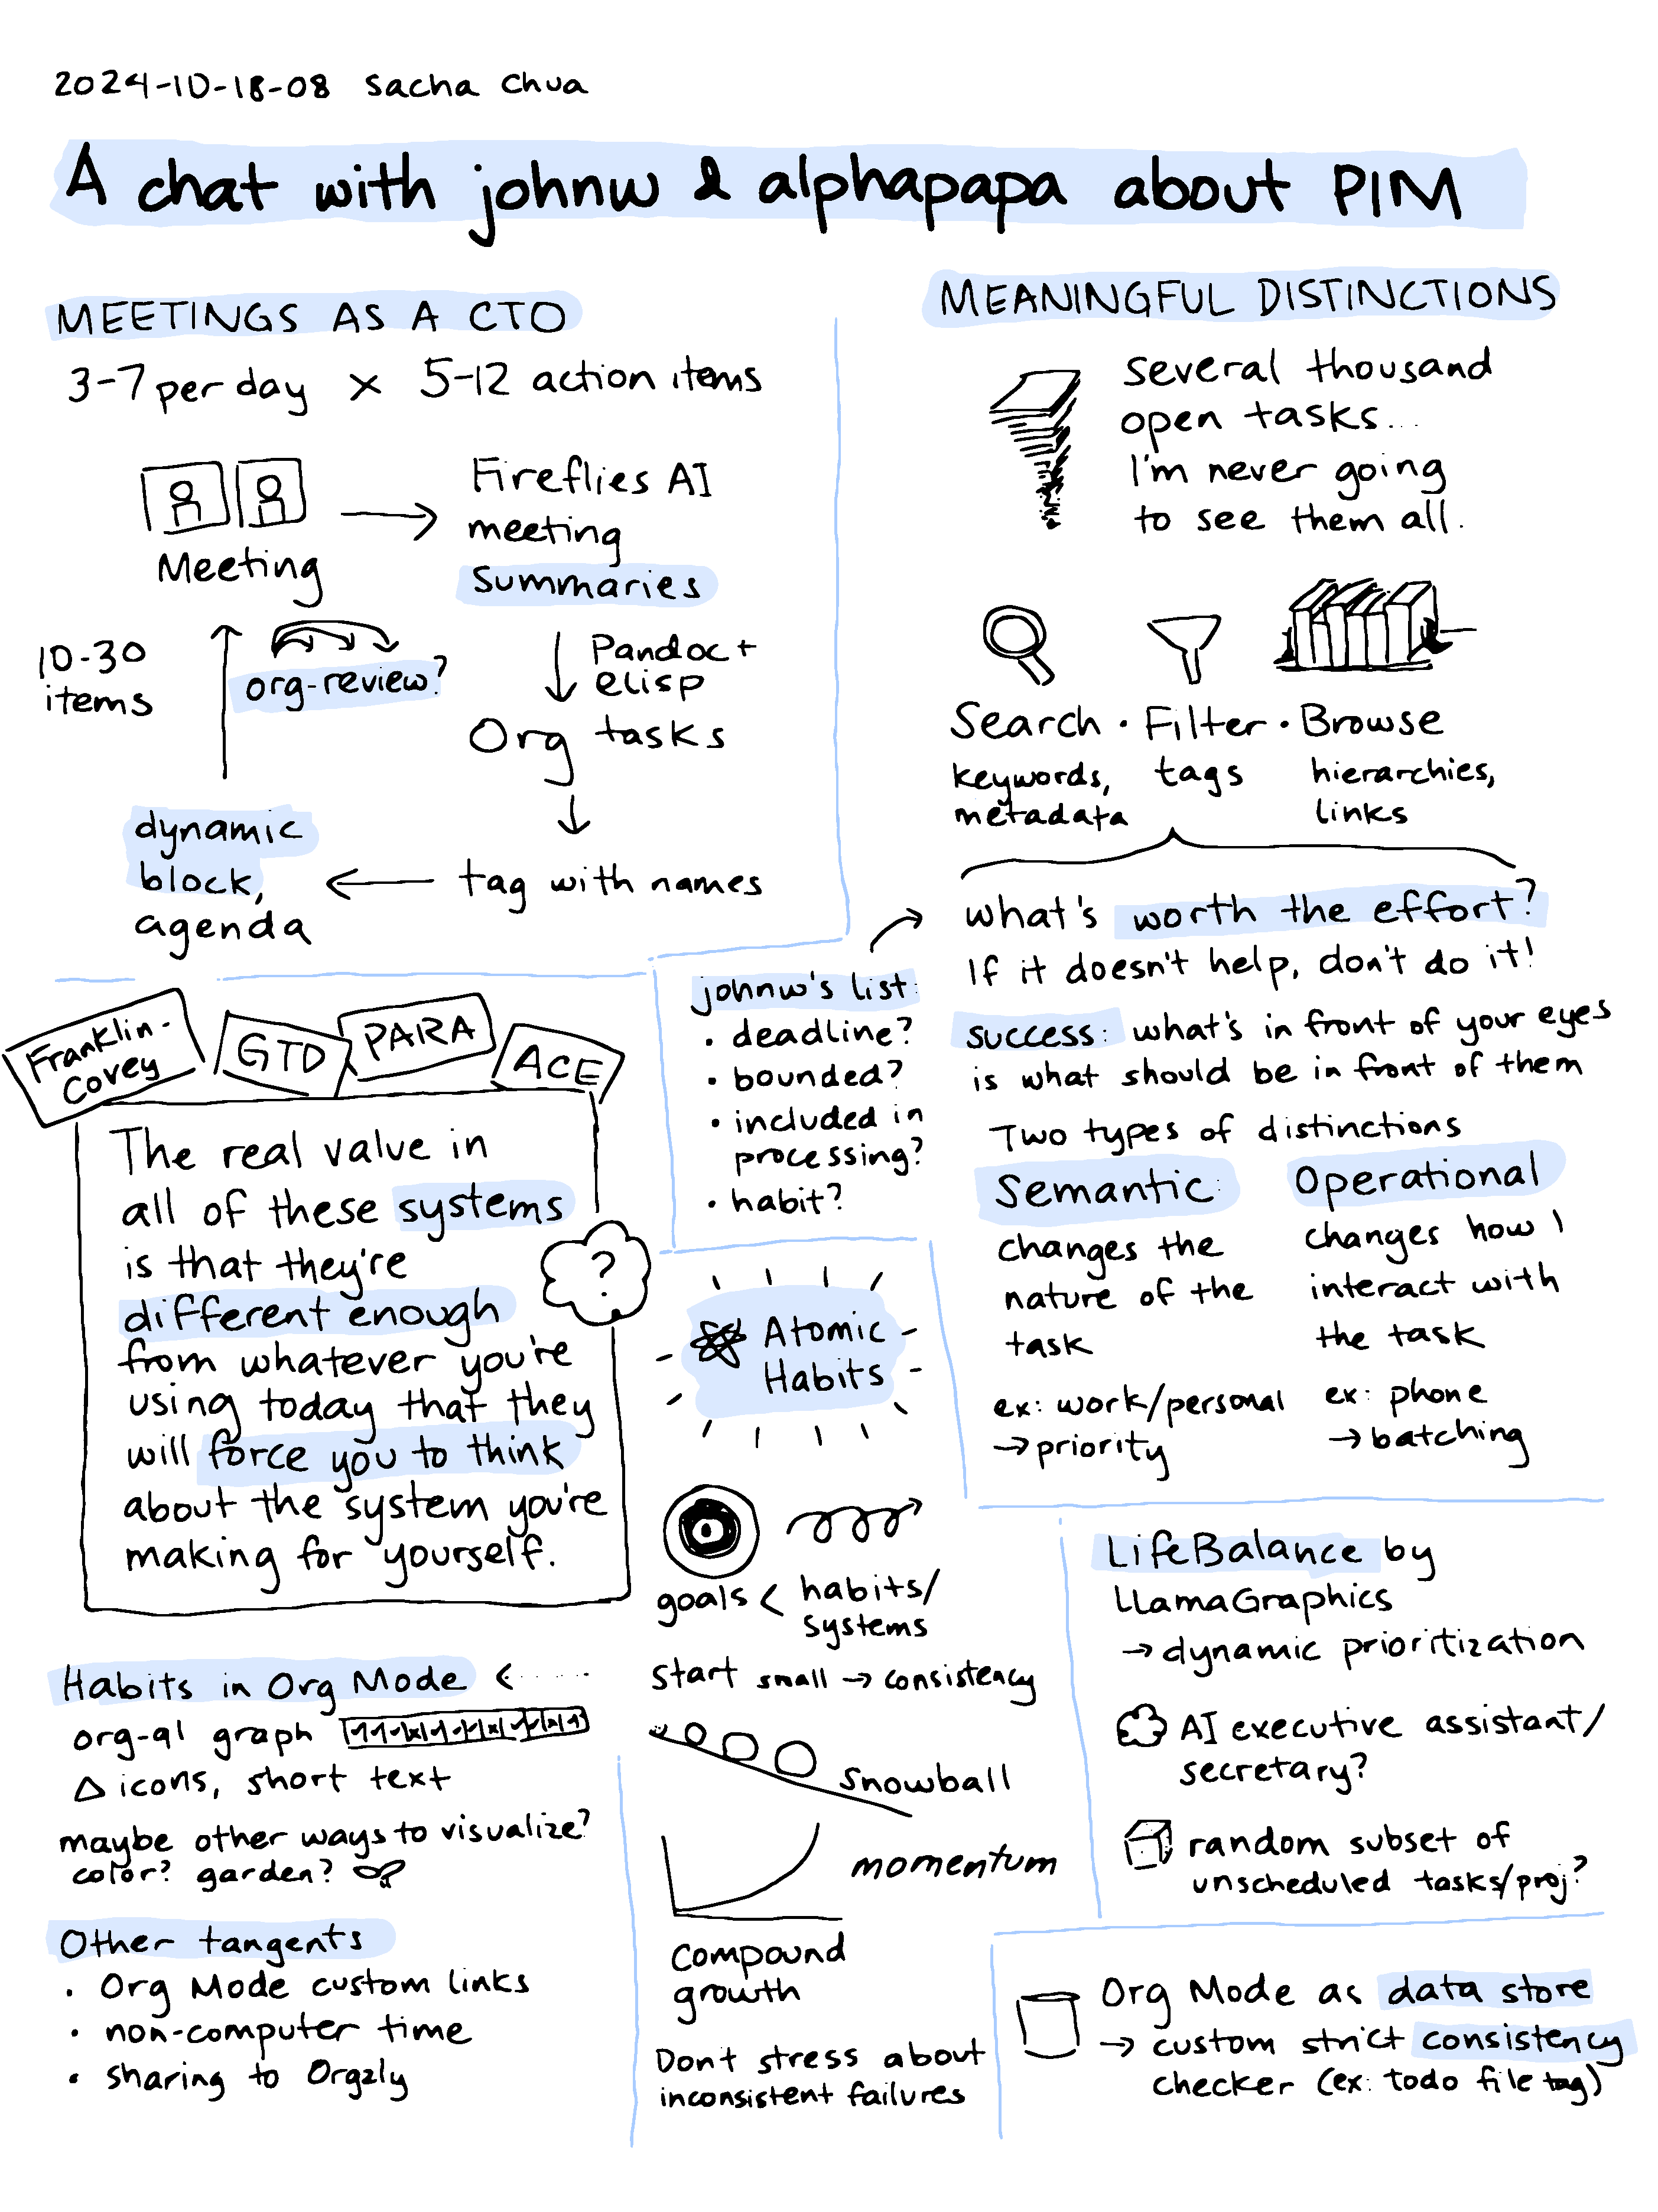 2024-10-18-08 Sacha Chua
A chat with johnw & alphapapa about PIM
MEETINGS AS A CTO
3-7 per day x 5-12 action items
Meeting
Fireflies AI
meeting
summaries
Pandoc +
elisp
Org tasks
tag with names
dynamic
block,
agenda
10-30
items
org-review?
MEANINGFUL DISTINCTIONS
several thousand
open tasks...
I'm never going
to see them all.
Search · Filter · Browse
keywords,
metadata
tags
hierarchies,
links
what's worth the effort?
If it doesn't help, don't do it!
success: what's in front of your eyes
is what should be in front of them
Two types of distinctions
Semantic:
changes the
nature of the
task
ex: work/personal
→ priority
Operational
changes how I
interact with
the task
ex: phone
→ batching
johnw's list:
• deadline?
• bounded?
• included in
processing?
• habit?
Franklin-
Covey
GTD
PARA
ACE
The real value in
all of these systems
is that they're
different enough
from whatever you're
using today that they
will force you to think
about the system you're
making for yourself.
?
Atomic
Habits
goals < habits/
systems
Start small → consistency
snowball
momentum
compound
growth
Don't stress about
inconsistent failures
Habits in Org Mode
org-ql graph
icons, short text
maybe other ways to visualize?
color? garden?
Other tangents
• Org Mode custom links
• non-computer time
• sharing to Orgzly
LifeBalance by
LlamaGraphics
→ dynamic prioritization
AI executive assistant/
secretary?
random subset of
unscheduled tasks/proj?
Org Mode as data store
→ custom strict consistency
checker (ex: todo file tag)